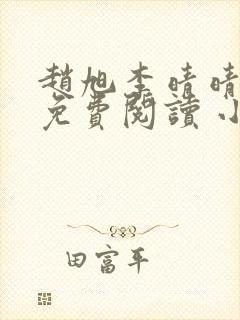 趙旭李晴晴
免費閱讀小
田富平